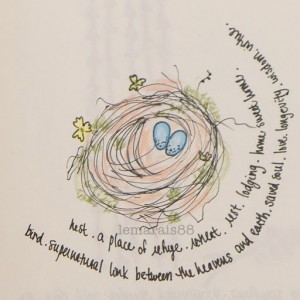 nest. a place of refuge. retreat. rest. lodging. home sweet home.
bird. supernatural link between the heavens and earth. saved soul. love. longevity. wisdom.
lemarais88